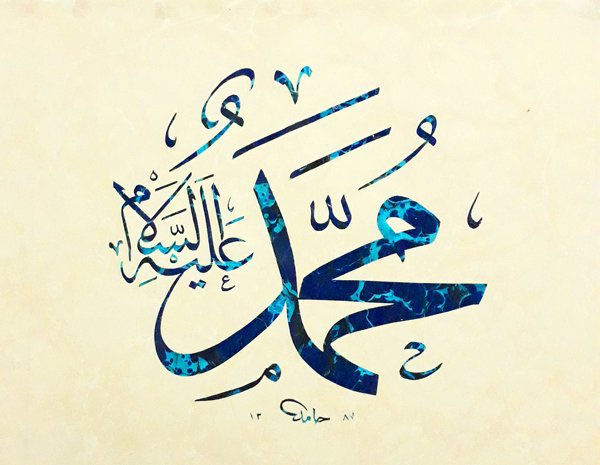 مُحَمَّدٌ
عَلَيْهِ السَّلَام
٨٧ حامد ١٣